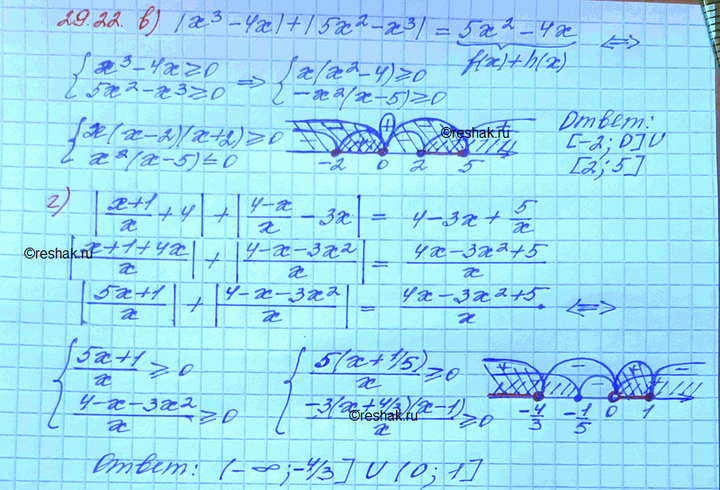 29.22. в) |x³ − 4x| + |5x² − x³| = 5x² − 4x ⇔
f(x)+h(x)
{ x³ − 4x ≥ 0 ⇒ { x(x² − 4) ≥ 0
5x² − x³ ≥ 0 −x²(x − 5) ≥ 0
{ x(x − 2)(x + 2) ≥ 0
x²(x − 5) ≤ 0
+ +
-2 0 2 5
©reshak.ru
Ответ:
[-2; 0] ∪
[2; 5]
г) |(x+1)/x + 4| + |(4−x)/x − 3x| = 4 − 3x + 5/x
©reshak.ru
|(x+1+4x)/x| + |(4−x−3x²)/x| = (4x−3x²+5)/x
|(5x+1)/x| + |(4−x−3x²)/x| = (4x−3x²+5)/x ⇔
{ (5x+1)/x ≥ 0 { 5(x+1/5)/x ≥ 0
(4−x−3x²)/x ≥ 0 −3(x+4/3)(x−1)/x ≥ 0
©reshak.ru
+ − − + −
-4/3 -1/5 0 1
Ответ: (−∞; −4/3] ∪ (0; 1]